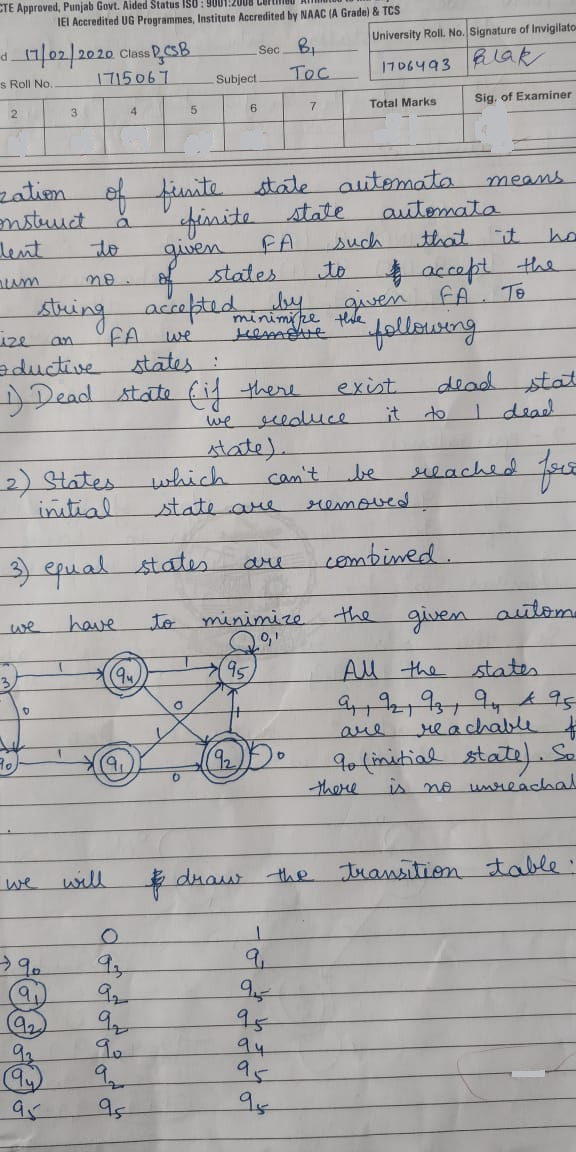 CTE Approved, Punjab Govt. Aided Status ISO : 9001:2008 Certified
IEI Accredited UG Programmes, Institute Accredited by NAAC (A Grade) & TCS
d 17/02/2020 Class D3CSB Sec B1
University Roll. No. Signature of Invigilato
1706493
s Roll No. 1715067 Subject TOC
2 3 4 5 6 7 Total Marks Sig. of Examiner
zation of finite state automata means
onstruct a finite state automata
lent to given FA such that it ha
num no. of states to accept the
string accepted by given FA. To
ize an FA we remove minimize the following
oductive states :
1) Dead state (if there exist dead stat
we reduce it to 1 dead
state).
2) States which can't be reached fro
initial state are removed.
3) equal states are combined.
we have to minimize the given autom
3 1 q4 1 q5 0,1
0 1 0
q0 1 q1 0 q2 0 1
All the states
q1, q2, q3, q4 & q5
are reachable f
q0 (initial state). So
there is no unreachal
we will draw the transition table :
0 1
→ q0 q3 q1
q1 q2 q5
q2 q2 q5
q3 q0 q4
q4 q2 q5
q5 q5 q5